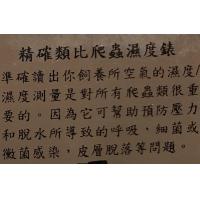 精確類比爬蟲濕度錶
準確讀出你飼養所空氣的濕度/
濕度測量是對所有爬蟲類很重
要的。因為它可幫助預防壓力
和脫水所導致的呼吸，細菌或
黴菌感染，皮層脫落等問題。